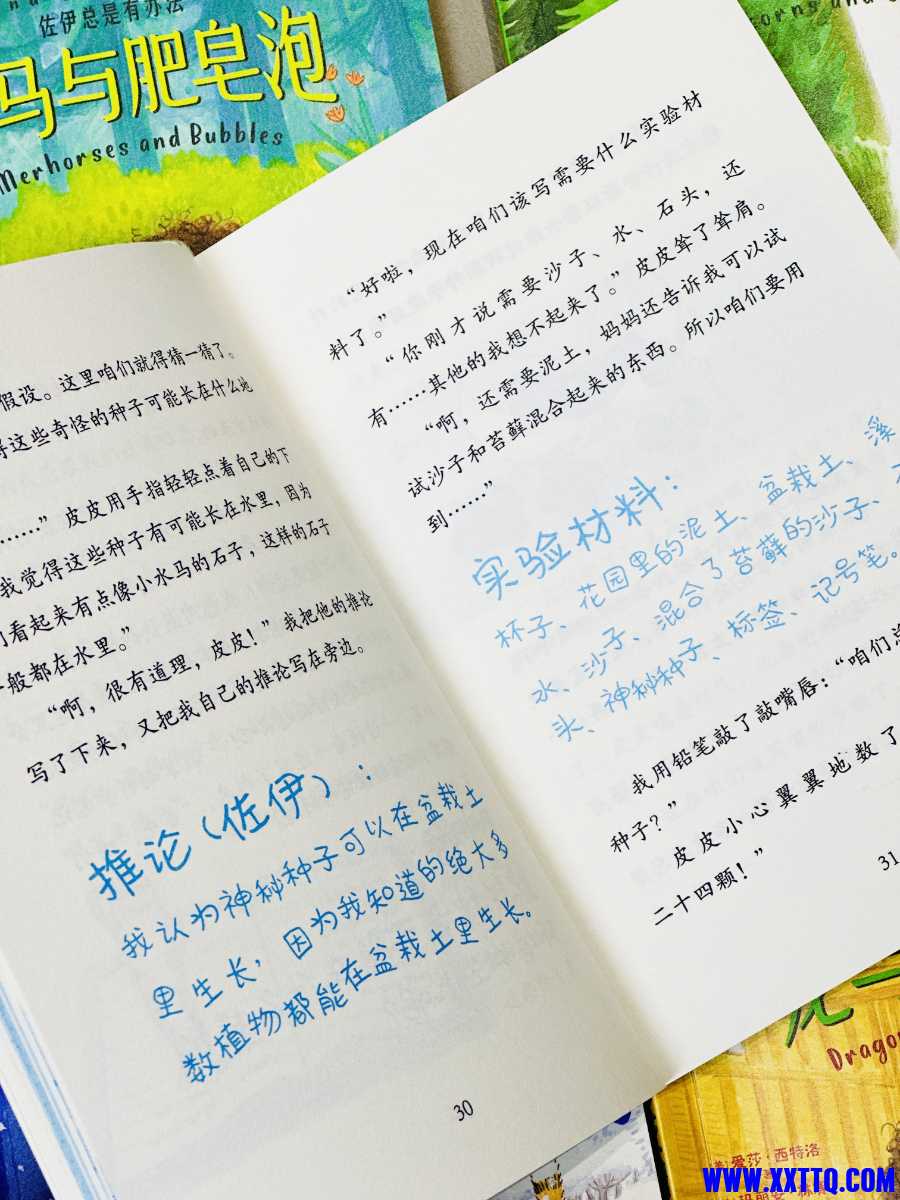 佐伊总是有办法
马与肥皂泡
Merhorses and Bubbles
假设。这里咱们就得猜一猜了。
得这些奇怪的种子可能长在什么地
……”皮皮用手指轻轻点着自己的下
我觉得这些种子有可能长在水里，因为
们看起来有点像小水马的石子，这样的石子
一般都在水里。”
“啊，很有道理，皮皮！”我把他的推论
写了下来，又把我自己的推论写在旁边。
推论（佐伊）：
我认为神秘种子可以在盆栽土
里生长，因为我知道的绝大多
数植物都能在盆栽土里生长。
30
“好啦，现在咱们该写需要什么实验材
料了。”
“你刚才说需要沙子、水、石头，还
有……其他的我想不起来了。”皮皮耸了耸肩。
“啊，还需要泥土，妈妈还告诉我可以试
试沙子和苔藓混合起来的东西。所以咱们要用
到……”
实验材料：
杯子、花园里的泥土、盆栽土、溪
水、沙子、混合了苔藓的沙子、
头、神秘种子、标签、记号笔。
我用铅笔敲了敲嘴唇：“咱们总
种子？”
皮皮小心翼翼地数了
二十四颗！”
31
Dragon
爱莎·西特洛
WWW.XXTTQ.COM